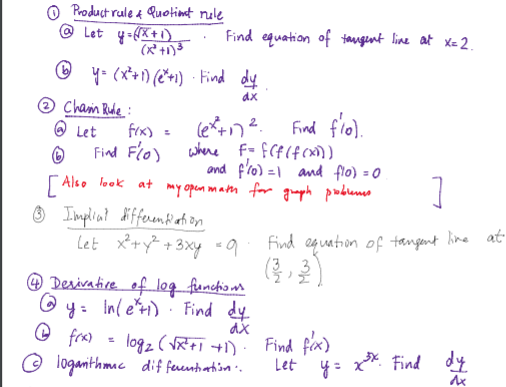 ① Product rule & Quotient rule
ⓐ Let y = (√x+1) / (x²+1)³ . Find equation of tangent line at x=2.
ⓑ y = (x²+1) (eˣ+1) . Find dy/dx
② Chain Rule :
ⓐ Let f(x) = (e^x²+1)². Find f'(0).
ⓑ Find F'(0) where F = f(f(f(x)))
and f'(0) = 1 and f(0) = 0
[ Also look at my open math for graph problems ]
③ Implicit differentiation
Let x² + y² + 3xy = 9 . Find equation of tangent line at
(3/2, 3/2)
④ Derivative of log functions
ⓐ y = ln(eˣ+1) . Find dy/dx
ⓑ f(x) = log₂(√x²+1 +1) . Find f'(x)
ⓒ logarithmic differentiation :. Let y = x^3x. Find dy/dx